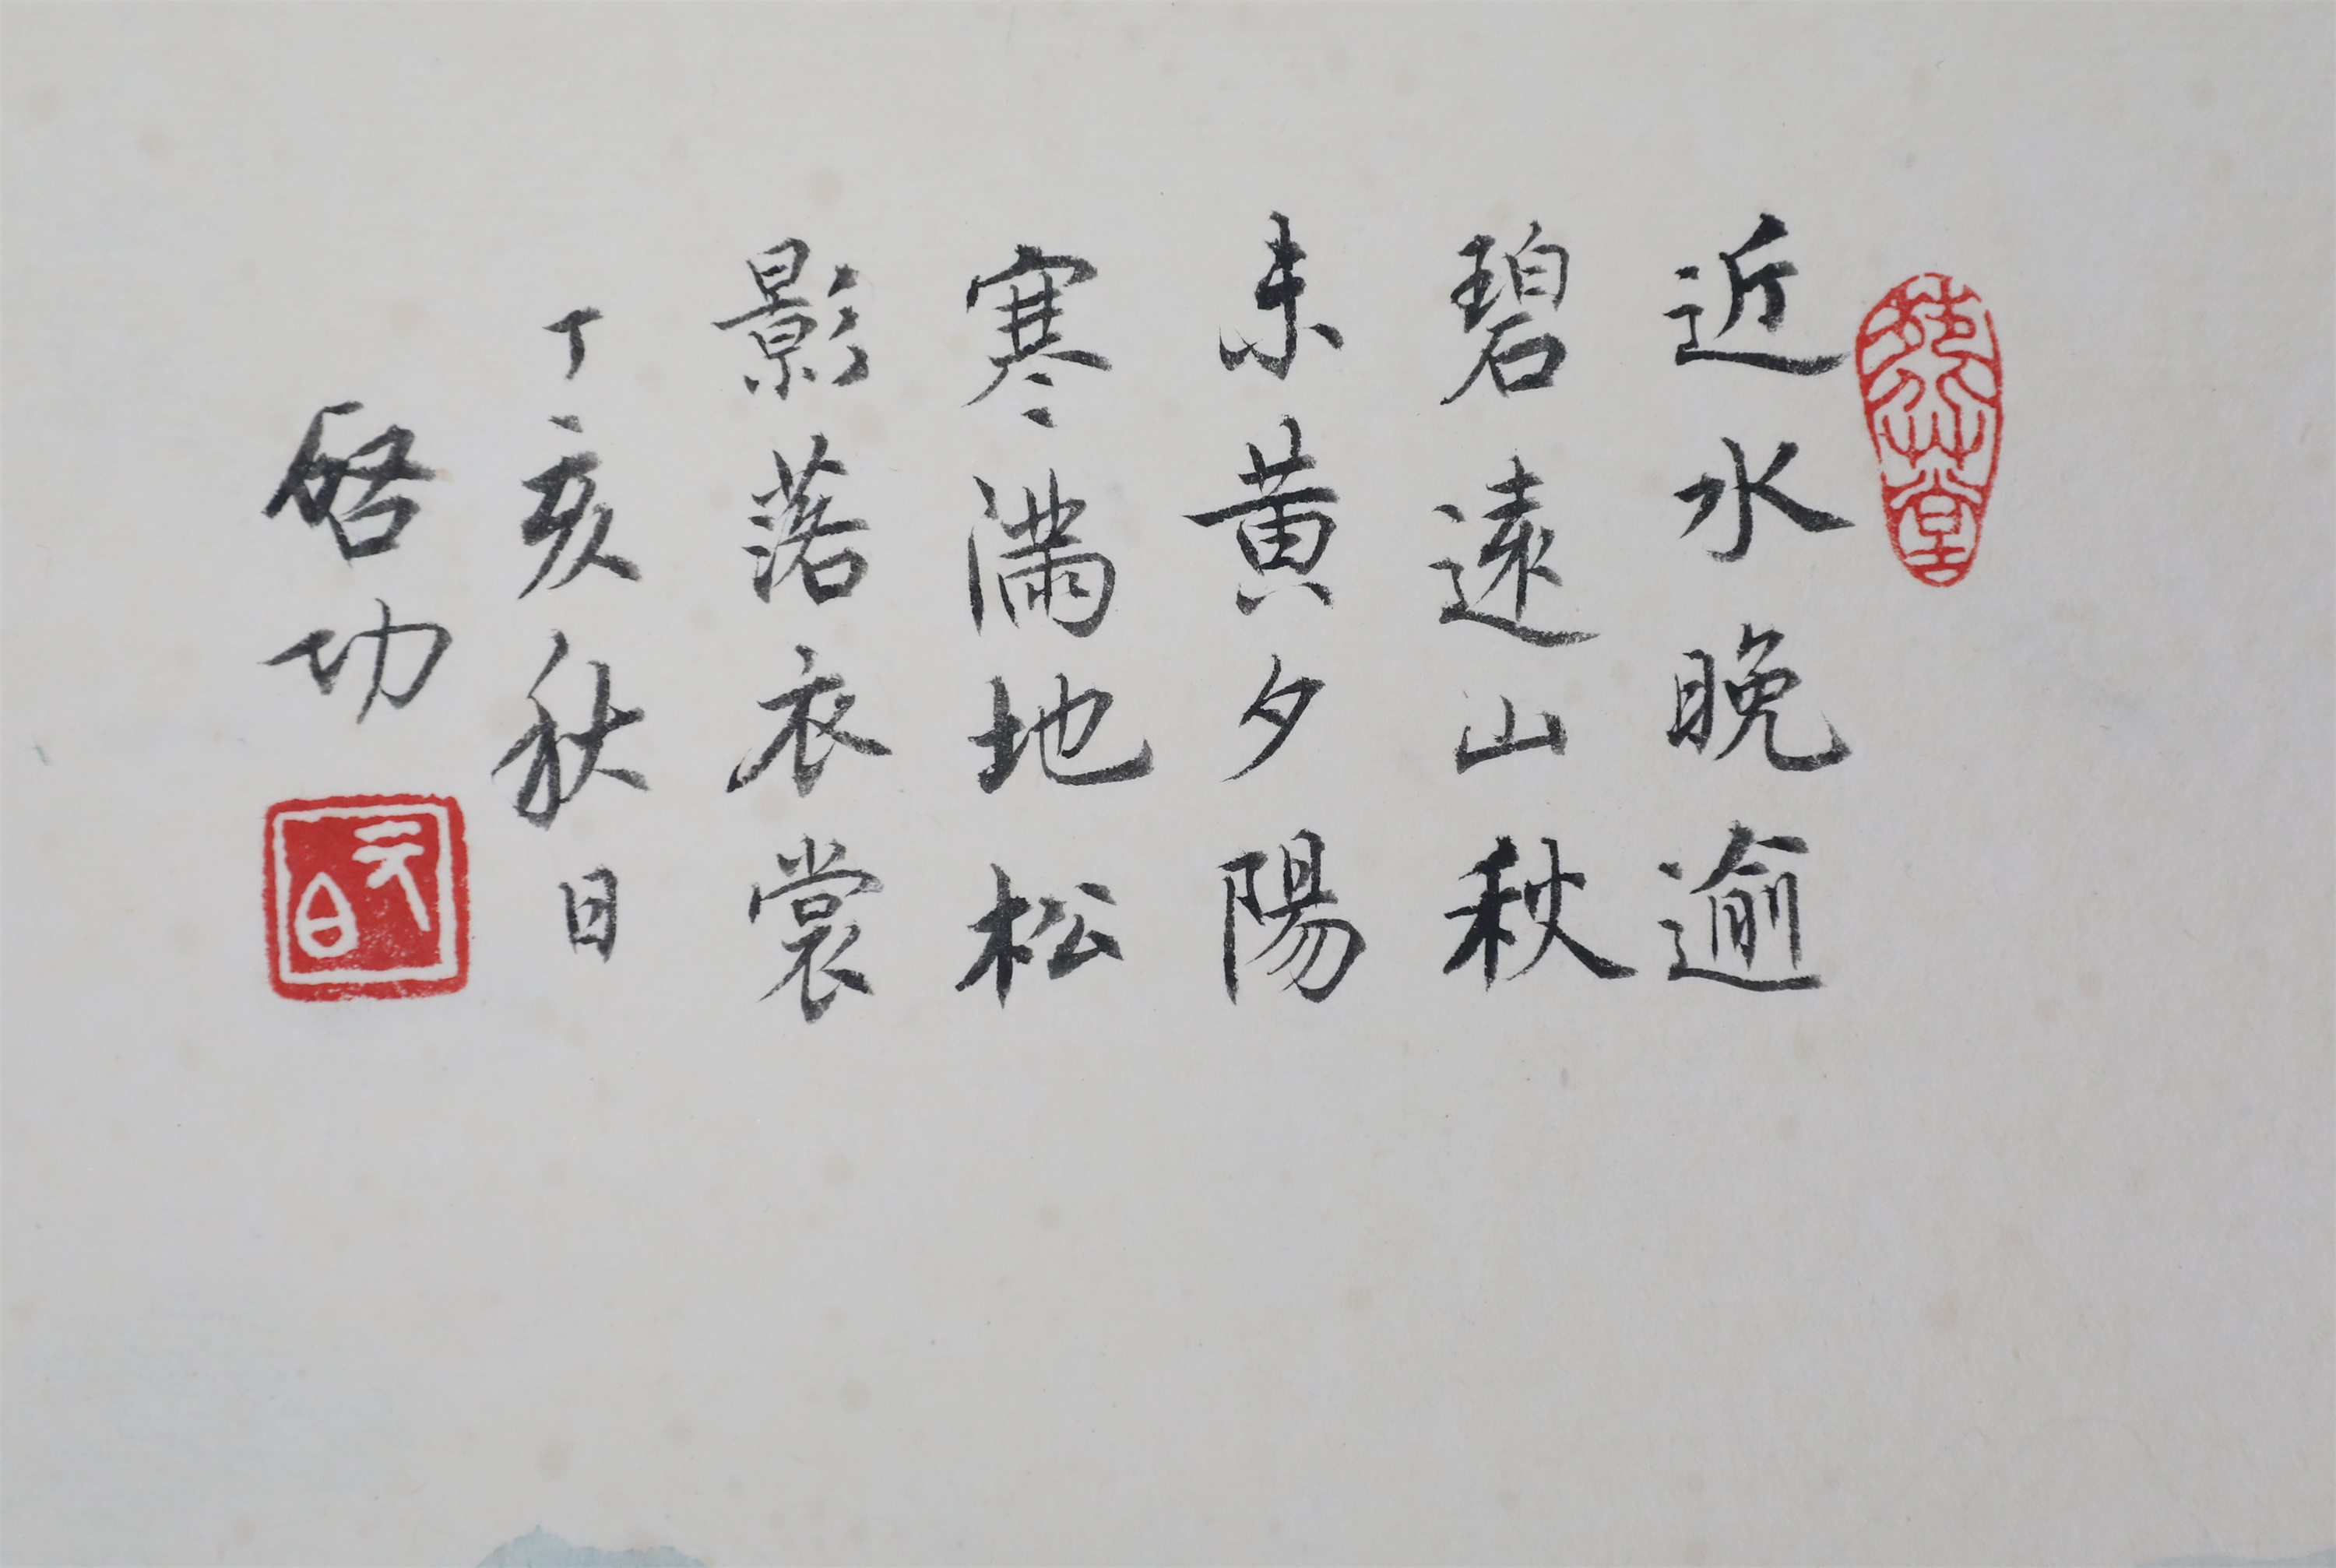 近水晚逾
碧遠山秋
未黄夕陽
寒滿地松
影落衣裳
丁亥秋日
啓功
元白